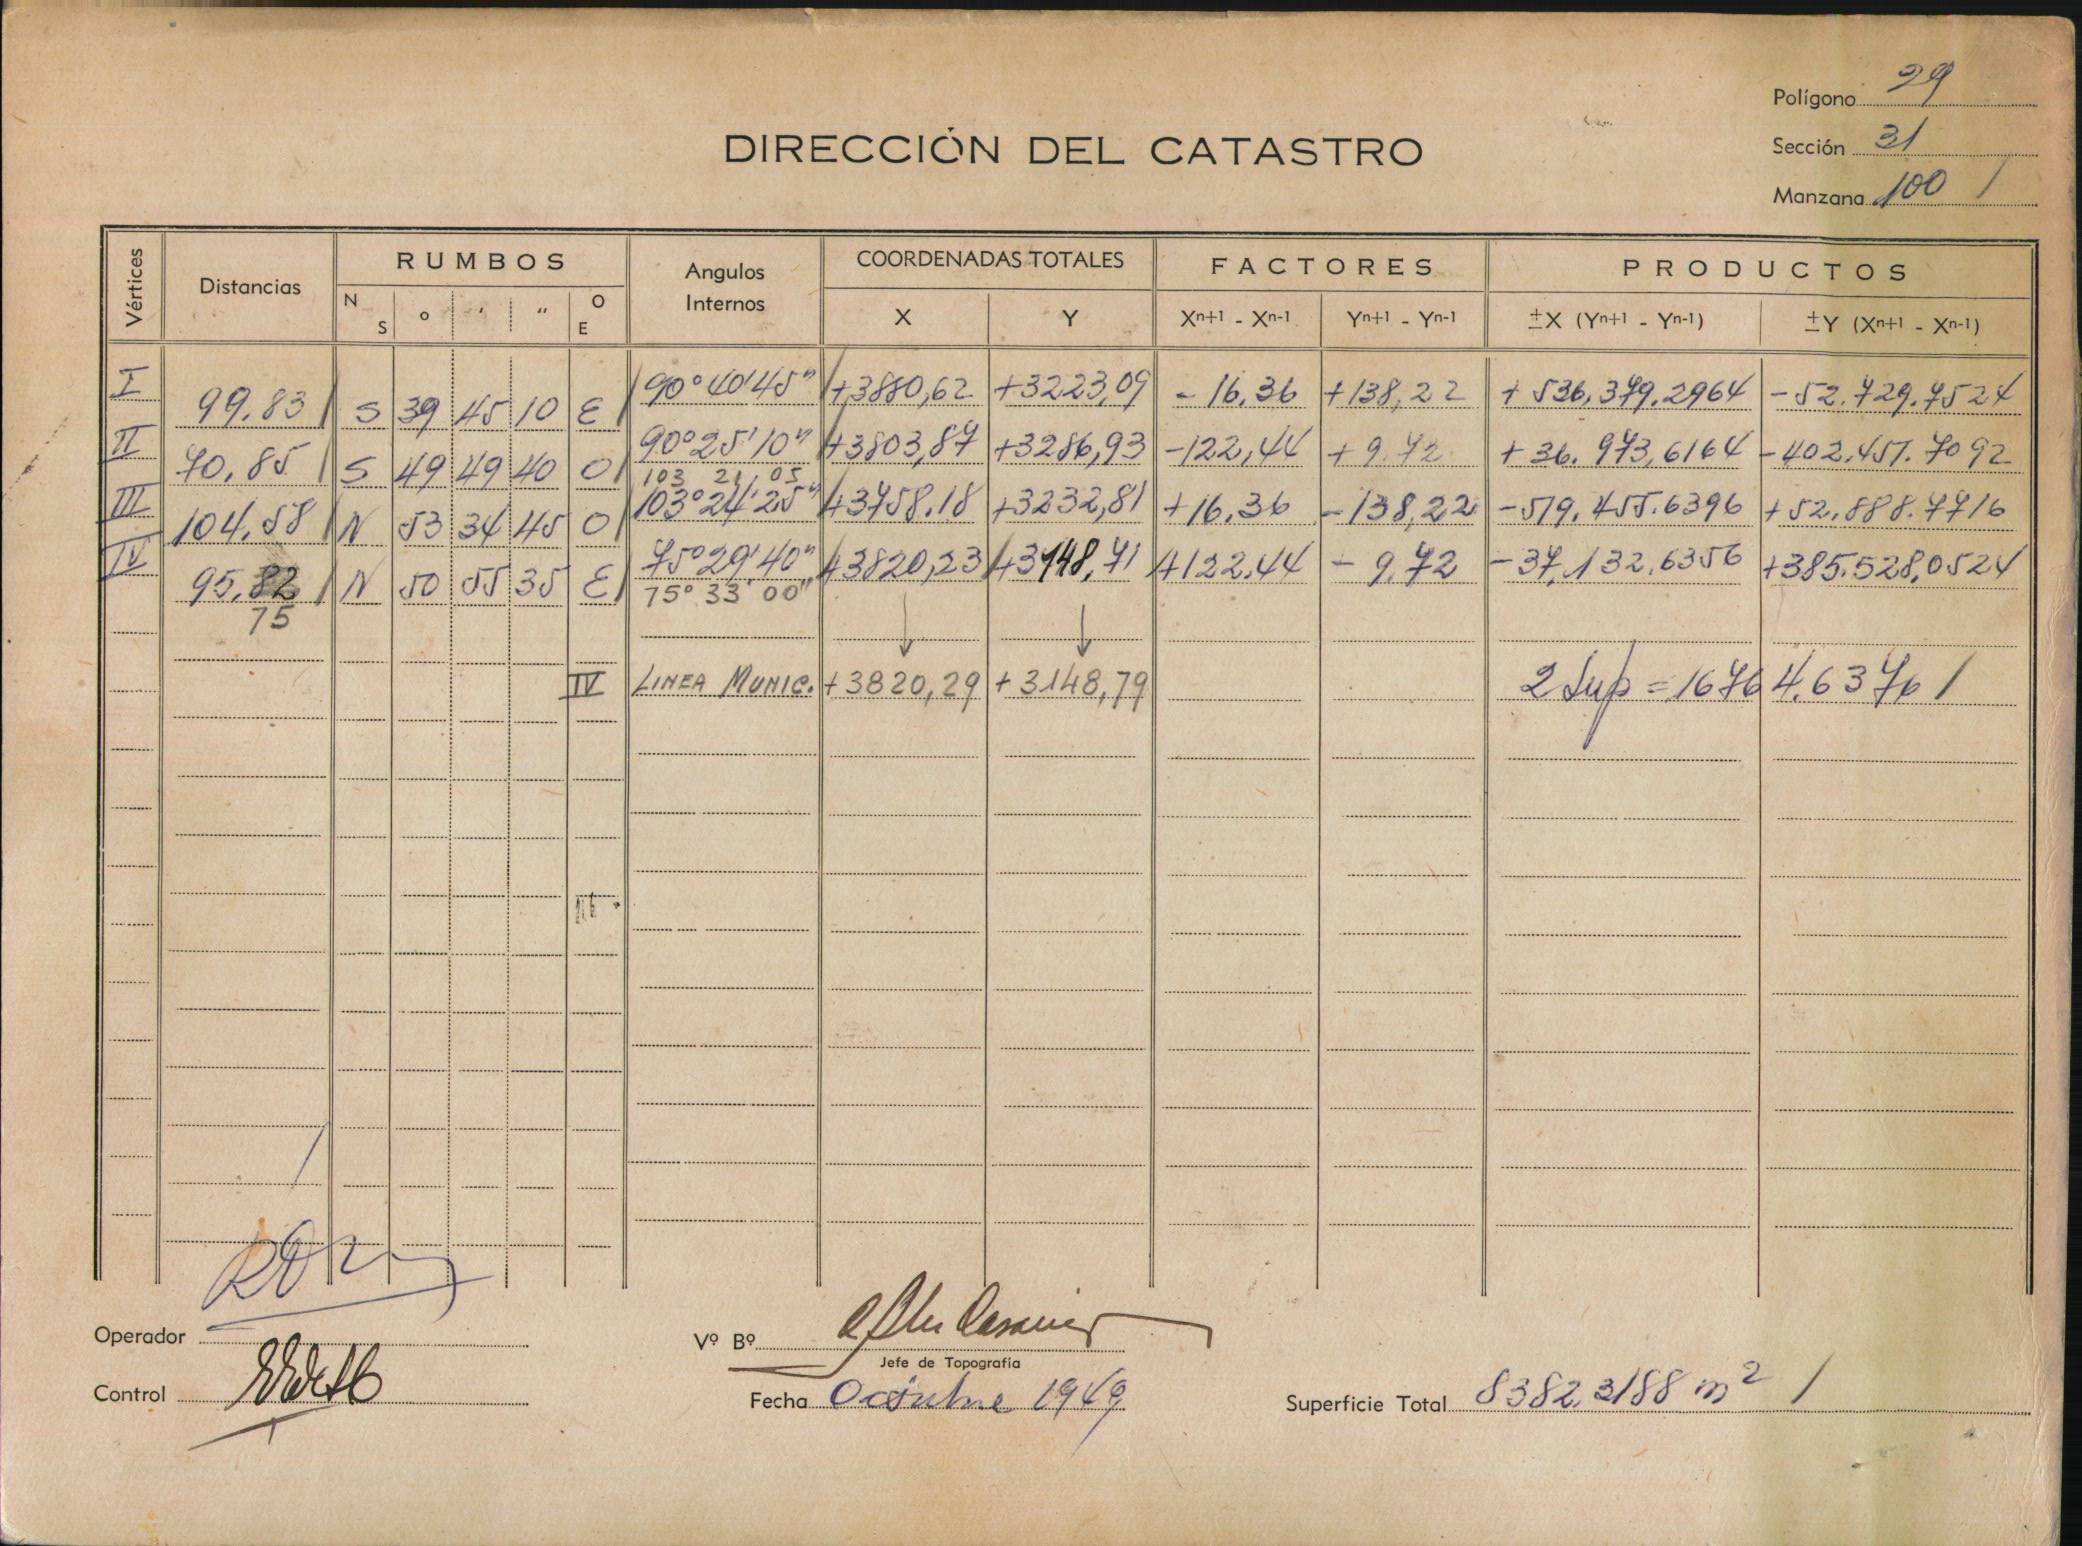 Polígono 29
DIRECCIÓN DEL CATASTRO
Sección 31
Manzana 100 /
Vértices Distancias RUMBOS Angulos Internos COORDENADAS TOTALES FACTORES PRODUCTOS
N S ° ' " O E X Y Xn+1 - Xn-1 Yn+1 - Yn-1 ±X (Yn+1 - Yn-1) ±Y (Xn+1 - Xn-1)
I 99.83 / S 39 45 10 E / 90° 40' 45" +3880,62 +3223,09 - 16,36 +138,22 + 536,379.2964 -52.729.7524
II 70.85 / S 49 49 40 O / 90° 25' 10" +3803,87 +3286,93 -122,44 + 9.72 + 36.973,6164 -402.451.7092
103 21 05
III 104,58 / N 53 34 45 O / 103° 24' 25" +3758.18 +3232,81 +16.36 -138,22 -519.455.6396 +52.888.7716
IV 95,82 / N 50 55 35 E / 75° 29' 40" +3820,23 +3148,71 +122.44 - 9.72 -37,132.6356 +385.528,0524
75 75° 33' 00"
IV LINEA MUNIC. +3820,29 +3148,79 2 Sup = 16764.6376 /
Operador
Vº Bº
Jefe de Topografía
Control
Fecha Octubre 1949
Superficie Total 8382.3188 m2 /